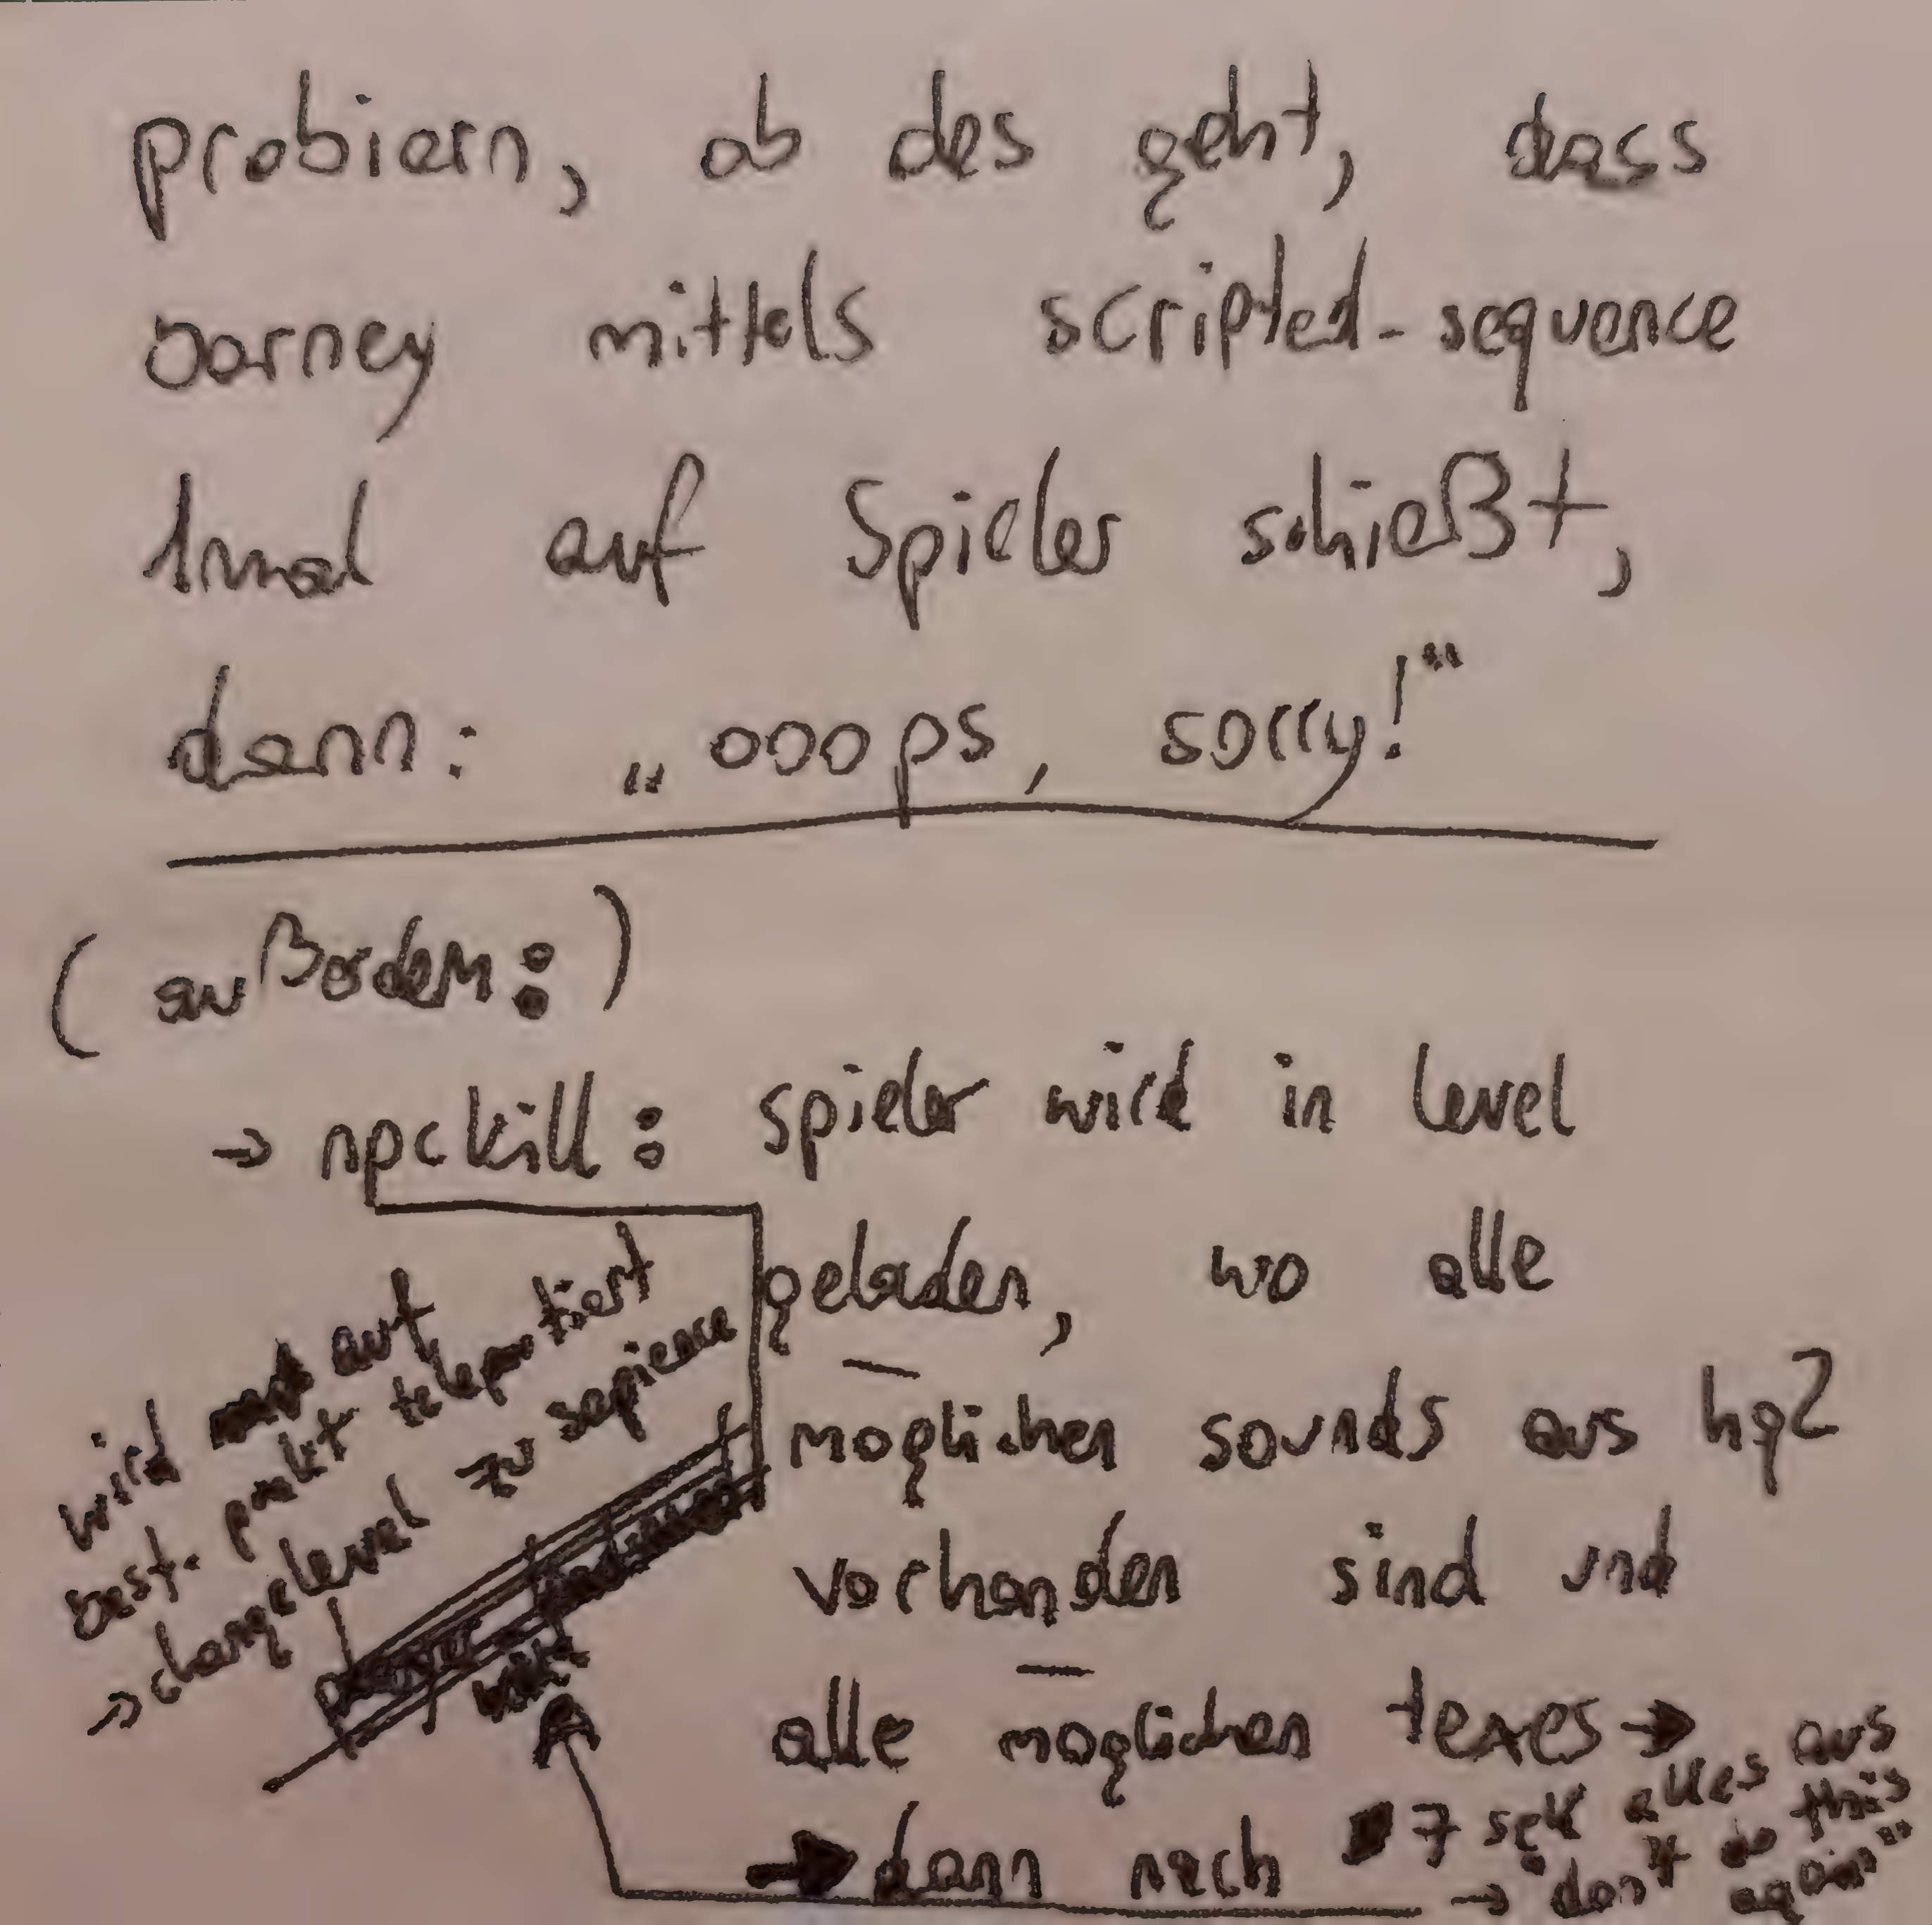 probiern, ob des geht, dass
barney mittels scripted-sequence
1mal auf Spieler schießt,
dann: „ooops, sorry!“
(außerdem:)
→ npckill: spieler wird in level
geladen, wo alle
möglichen sounds aus hq2
vorhanden sind und
alle möglichen texes → aus
→ dann nach 7 sek alles
→ "don't do this
again"
wird auf
best. punkt teleportiert
→ changelevel zu sapience